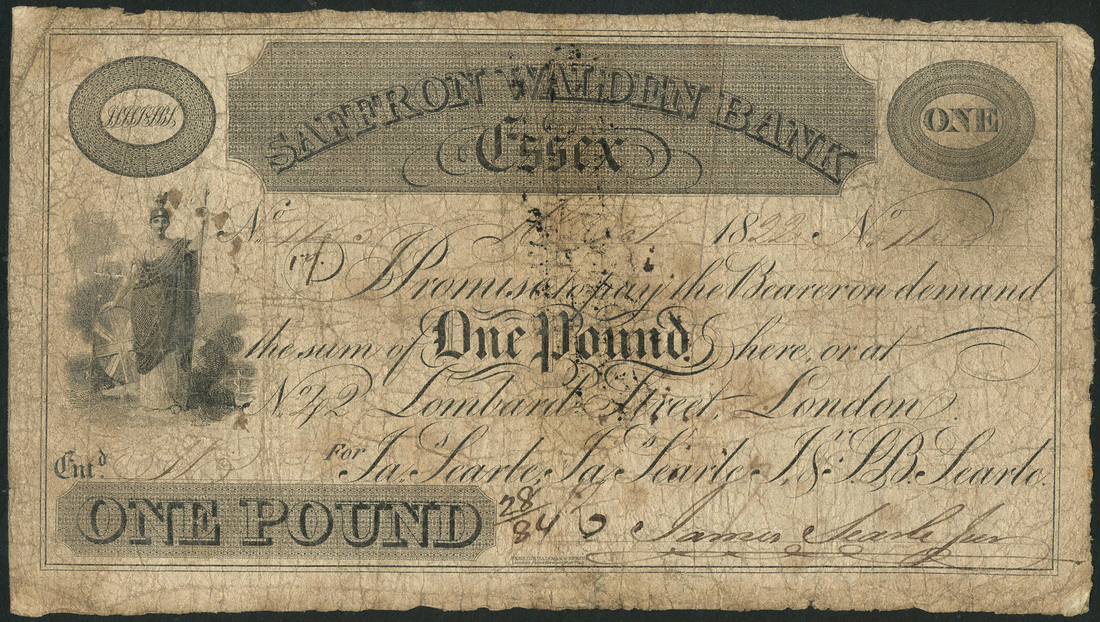 SAFFRON WALDEN BANK
Essex
ONE
No 1822 No
I Promise to pay the Bearer on demand
the sum of One Pound here, or at
No. 42 Lombard Street, London.
Entd. For Jas. Searle, Jas. Searle Jr. & S.B. Searle.
ONE POUND 28/84 James Searle Junr